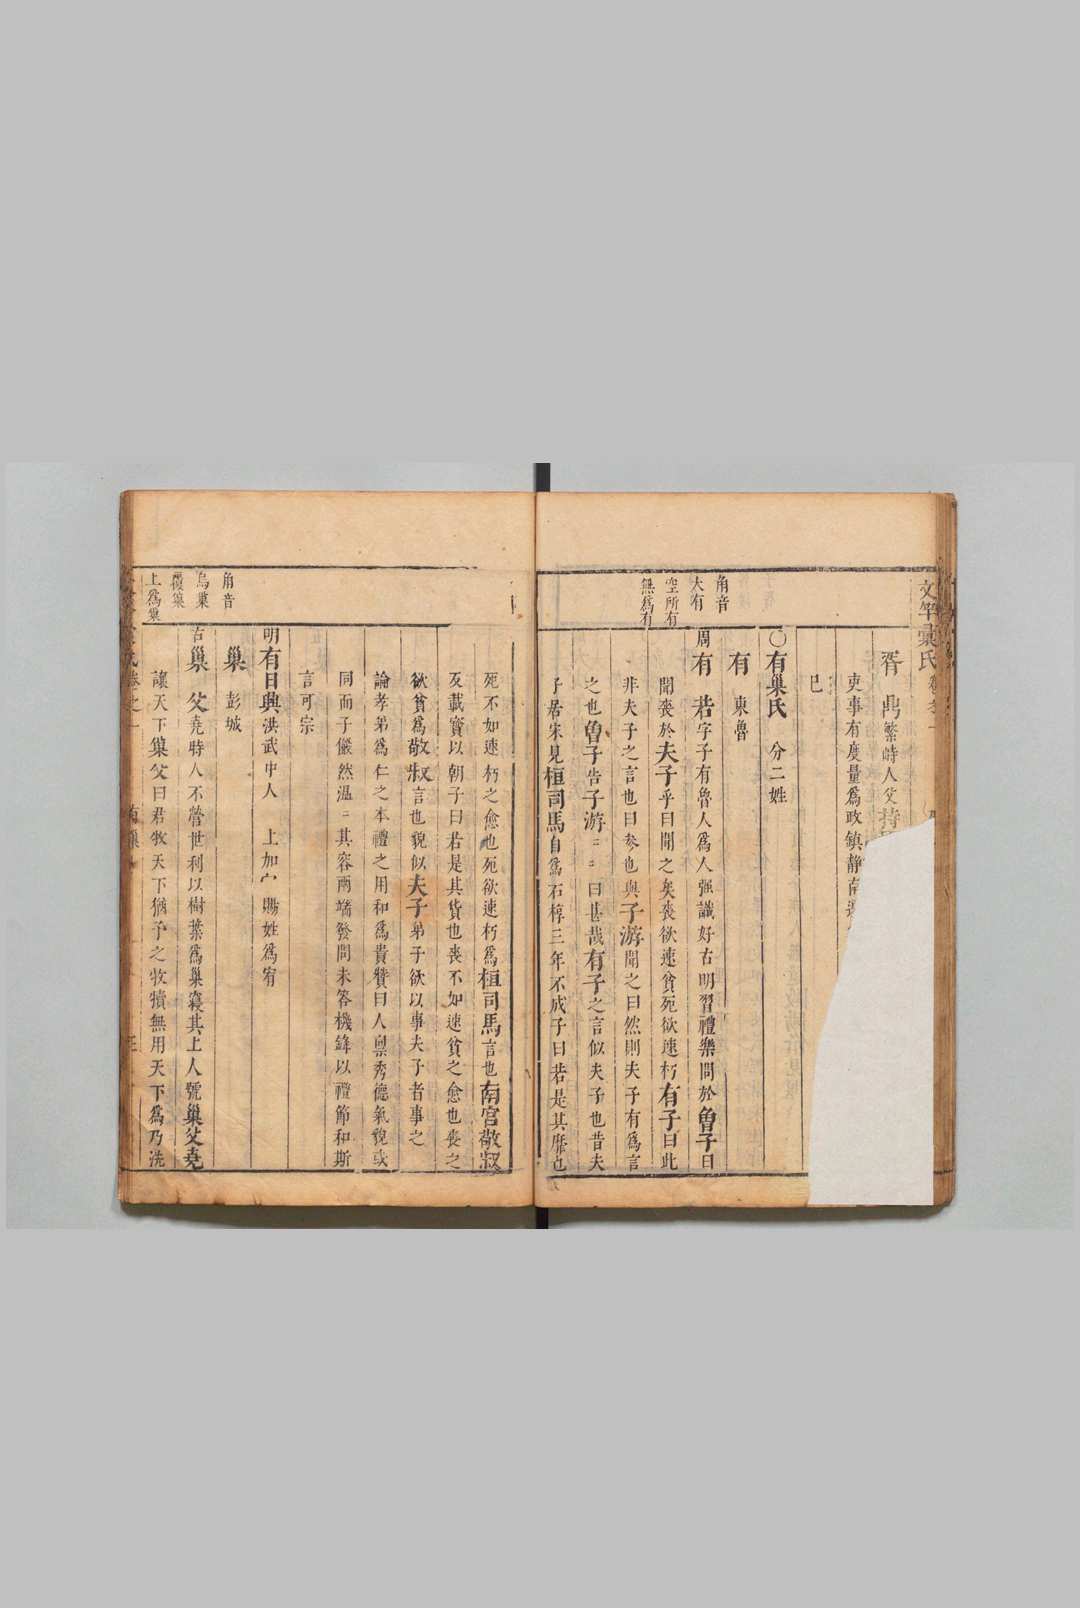 胥 鼎繁峙人父持
吏事有度量爲政鎮靜南遷
巳
〇有巢氏 分二姓
角音
大有
空所有
無爲有
有 東魯
周有 若字子有魯人爲人强識好古明習禮樂問於魯子曰
聞喪於夫子乎曰聞之矣喪欲速貧死欲速朽有子曰此
非夫子之言也曰參也與子游聞之曰然則夫子有爲言
之也魯子告子游〻〻曰甚哉有子之言似夫子也昔夫
子居宋見桓司馬自爲石椁三年不成子曰若是其靡也
死不如速朽之愈也死欲速朽爲桓司馬言也南宮敬叔
反載寶以朝子曰若是其貨也喪不如速貧之愈也喪之
欲貧爲敬叔言也貌似夫子弟子欲以事夫子者事之
論孝弟爲仁之本禮之用和爲貴贊曰人稟秀德氣貌或
同而子儼然溫〻其容兩端發問未答機鋒以禮節和斯
言可宗
明有日興洪武中人 上加宀賜姓爲宥
角音
鳥巢
覆巢
上爲巢
巢 彭城
古巢 父堯時人不營世利以樹葉爲巢寢其上人號巢父堯
讓天下巢父曰君牧天下猶予之牧犢無用天下爲乃洗